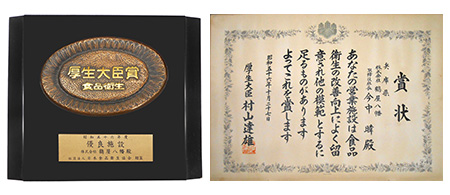 厚生大臣賞
食品衛生
昭和五十六年度
優良施設
株式会社 鶴屋八幡殿
賞状
兵庫県
株式会社 鶴屋八幡
今中
あなたの営業施設は食品
衛生の改善向上によく留
意され他の模範とするに
足るものがあります
よってこれを賞します
昭和五十六年十月二十七日
厚生大臣 村山達雄